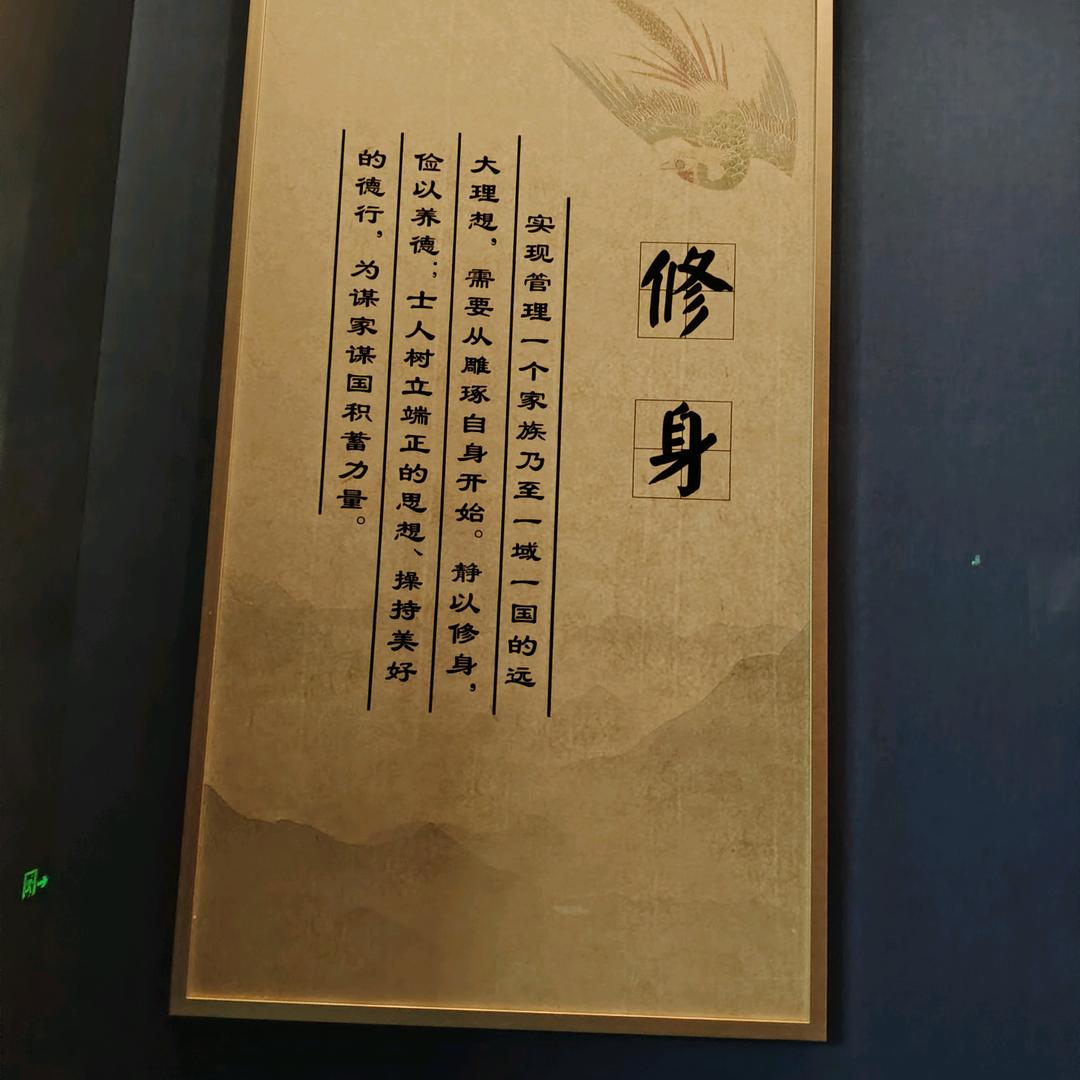 修身
实现管理一个家族乃至一域一国的远
大理想，需要从雕琢自身开始。静以修身，
俭以养德；士人树立端正的思想、操持美好
的德行，为谋家谋国积蓄力量。